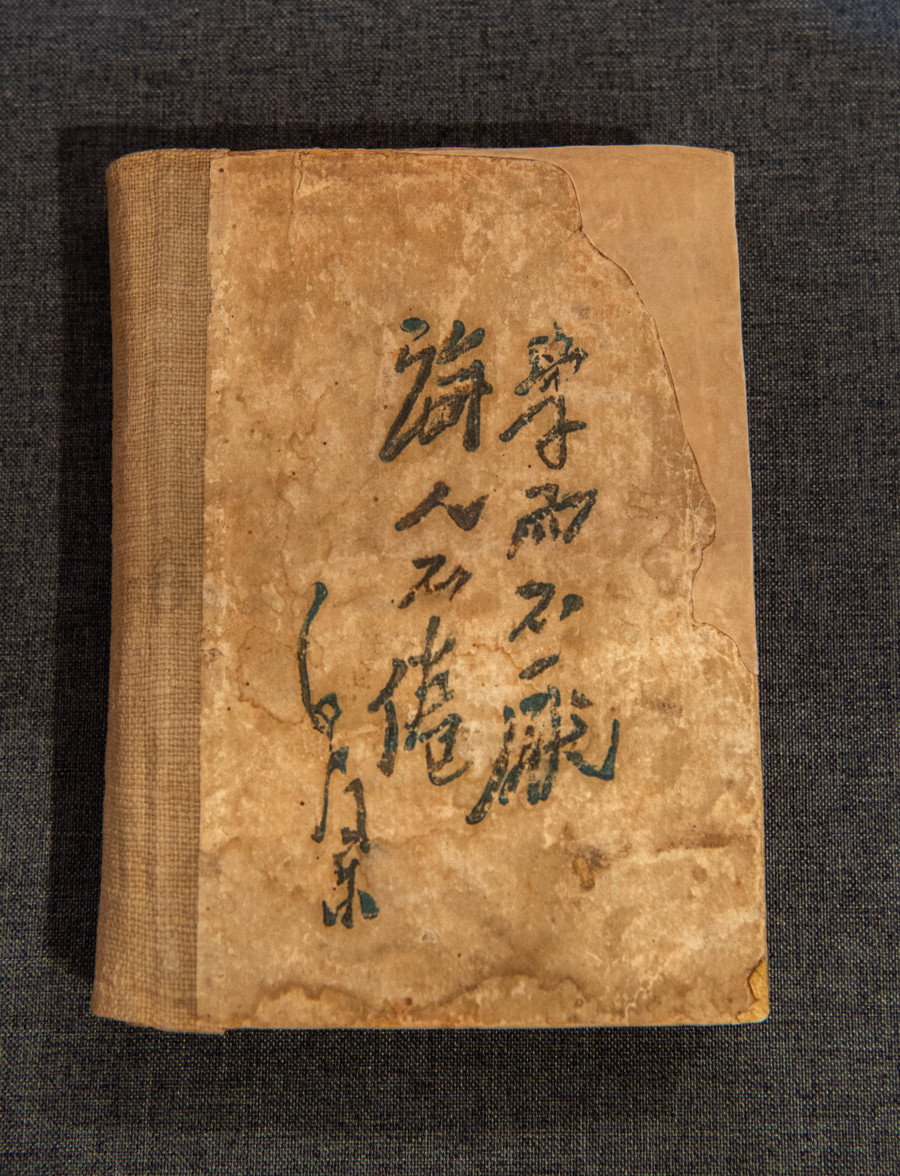 學而不厭
誨人不倦
毛澤東